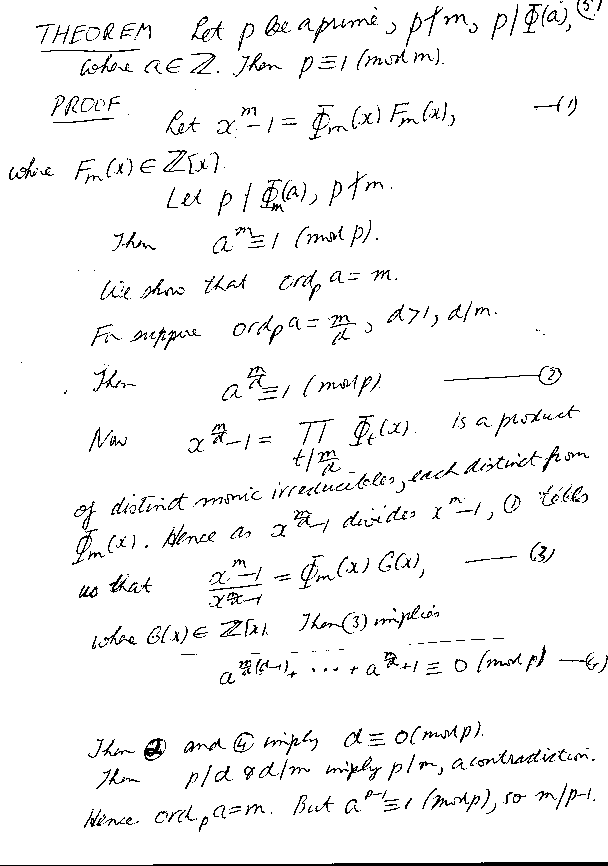 THEOREM Let p be a prime, p∤m, p | Φ(a), (5)
where a ∈ Z. Then p ≡ 1 (mod m).
PROOF. Let x^m − 1 = Φ_m(x) F_m(x), —(1)
where F_m(x) ∈ Z[x].
Let p | Φ_m(a), p∤m.
Then a^m ≡ 1 (mod p).
We show that ord_p a = m.
For suppose ord_p a = m/d, d>1, d|m.
Then a^{m/d} ≡ 1 (mod p) —②
Now x^{m/d} − 1 = ∏_{t|m/d} Φ_t(x). is a product
of distinct monic irreducibles, each distinct from
Φ_m(x). Hence as x^{m/d} − 1 divides x^m − 1, ① tells
us that (x^m − 1)/(x^{m/d} − 1) = Φ_m(x) G(x), —(3)
where G(x) ∈ Z[x]. Then (3) implies
a^{m/d(d−1)} + ··· + a^{m/d} + 1 ≡ 0 (mod p) —(4)
Then ② and ④ imply d ≡ 0 (mod p).
Then p/d & d/m imply p/m, a contradiction.
Hence ord_p a = m. But a^{p−1} ≡ 1 (mod p), so m/p−1.